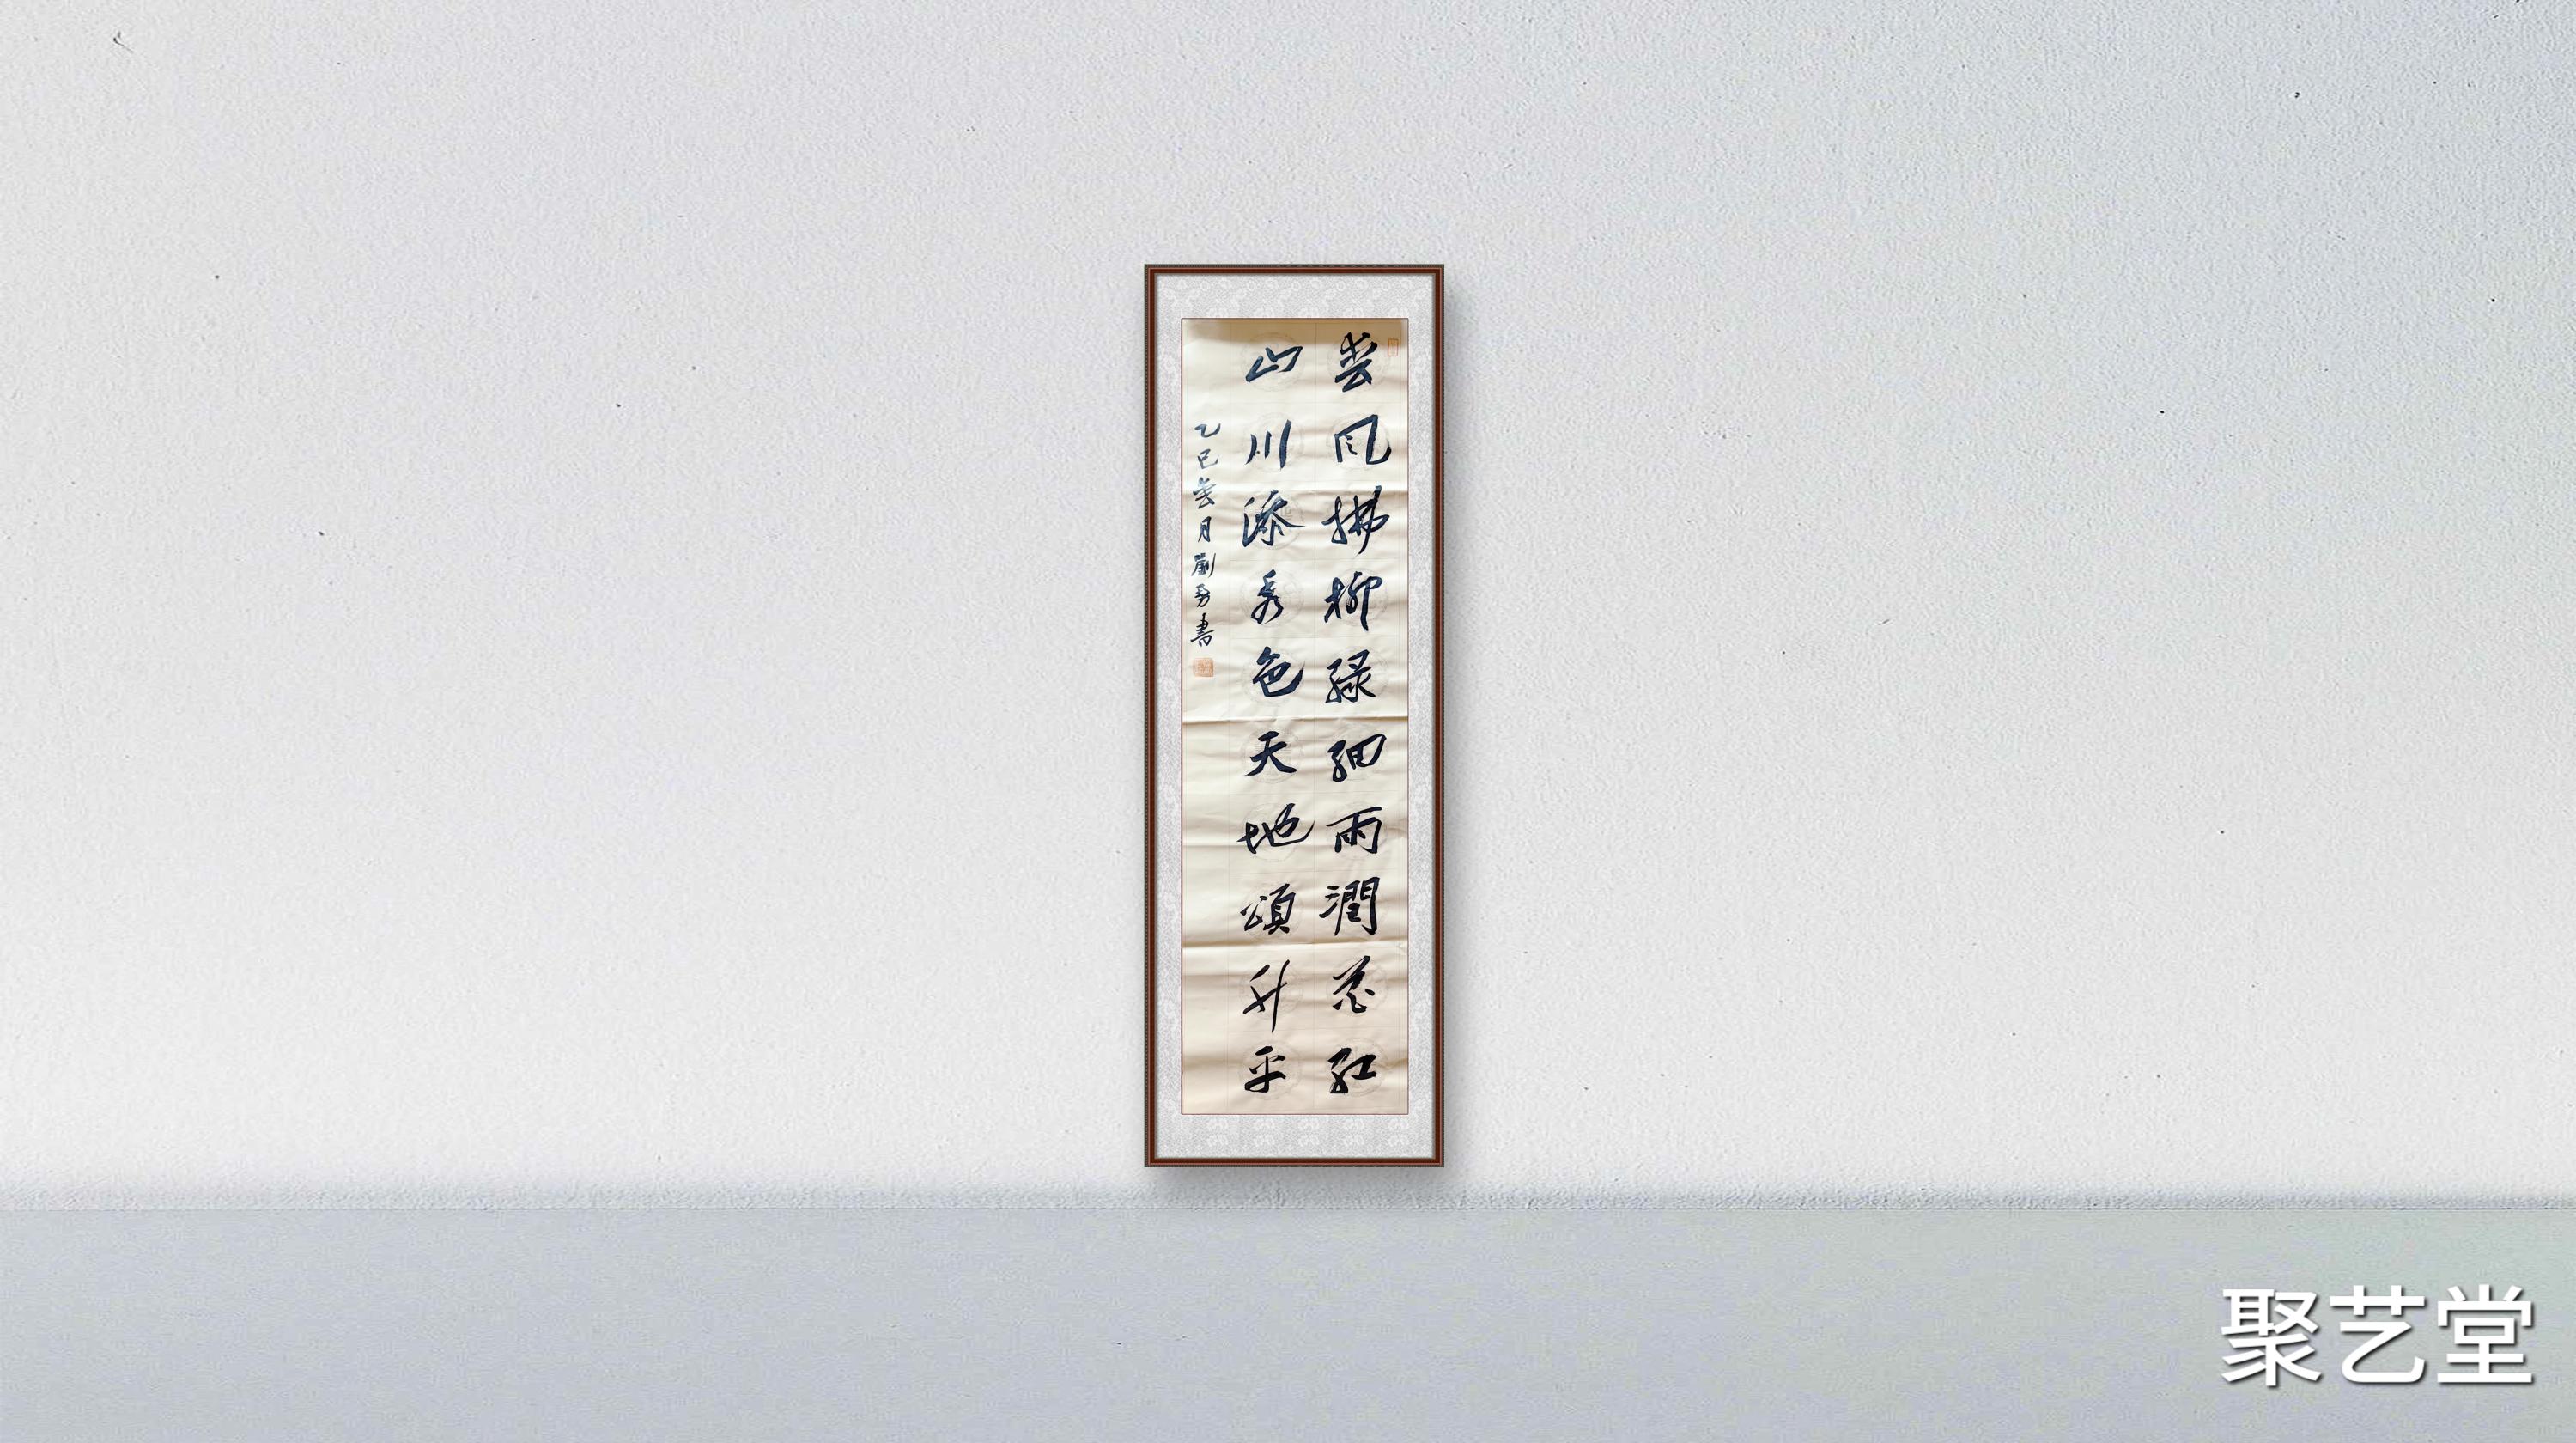 春风拂柳绿细雨潤花红
山川添秀色天地頌升平
乙巳春月劉勇書
聚艺堂